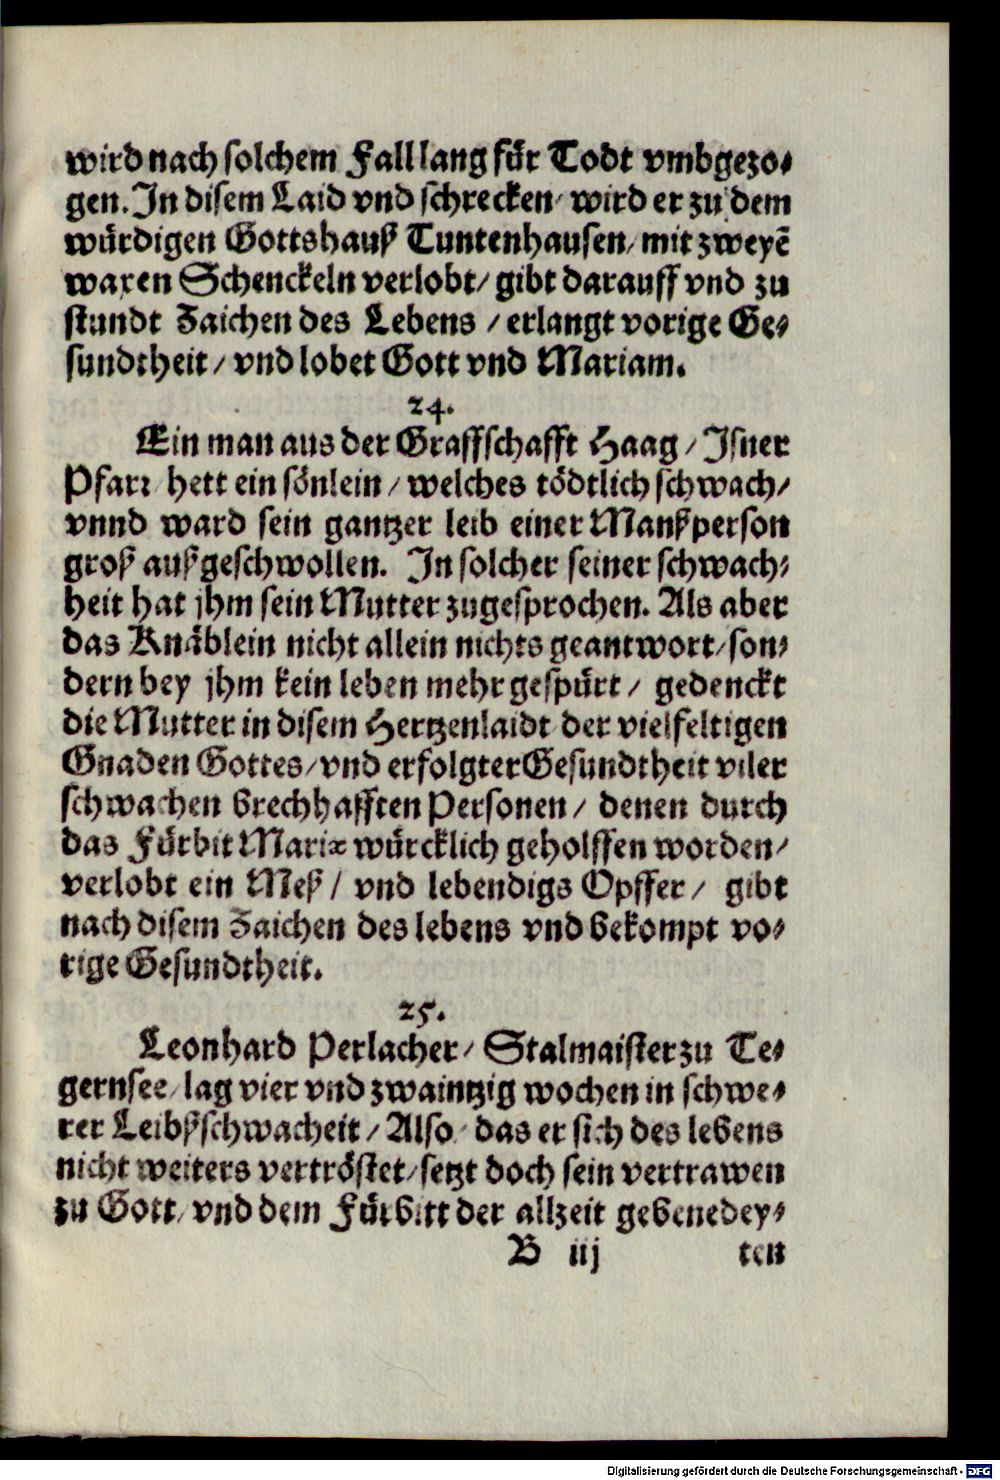 wird nach solchem Fall lang für Todt vmbgezo⸗
gen. In disem Laid vnd schrecken / wird er zu dem
würdigen Gottshauß Tuntenhausen / mit zweyẽ
waxen Schenckeln verlobt / gibt darauff vnd zu
stundt Zaichen des Lebens / erlangt vorige Ge⸗
sundtheit / vnd lobet Gott vnd Mariam.
24.
Ein man aus der Graffschafft Haag / Isner
Pfarr / hett ein sönlein / welches tödtlich schwach /
vnnd ward sein gantzer leib einer Manßperson
groß außgeschwollen. In solcher seiner schwach⸗
heit hat jhm sein Mutter zugesprochen. Als aber
das Knäblein nicht allein nichts geantwort / son⸗
dern bey jhm kein leben mehr gespürt / gedenckt
die Mutter in disem Hertzenlaidt der vielfeltigen
Gnaden Gottes / vnd erfolgter Gesundtheit viler
schwachen brechhafften Personen / denen durch
das Fürbit Mariæ würcklich geholffen worden /
verlobt ein Meß / vnd lebendigs Opffer / gibt
nach disem Zaichen des lebens vnd bekompt vo⸗
rige Gesundtheit.
25.
Leonhard Perlacher / Stalmaister zu Te⸗
gernsee / lag vier vnd zwaintzig wochen in schwe⸗
rer Leibßschwacheit / Also / das er sich des lebens
nicht weiters vertröstet / setzt doch sein vertrawen
zu Gott / vnd dem Fürbitt der allzeit gebenedey⸗
B iij ten
Digitalisierung gefördert durch die Deutsche Forschungsgemeinschaft - DFG